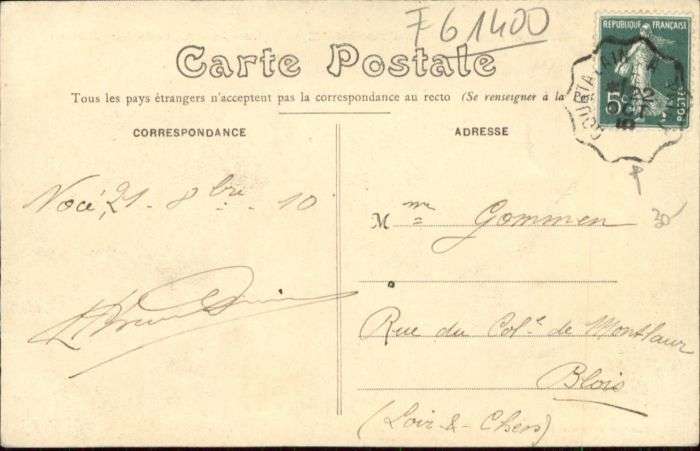 F61400
Carte Postale
Tous les pays étrangers n'acceptent pas la correspondance au recto (Se renseigner à la
CORRESPONDANCE
ADRESSE
RÉPUBLIQUE FRANÇAISE
5c
POSTES
Nocé, 21 - 8bre - 10
Mme Gommen
30
Rue du Cole de Montlaur
Blois
(Loir-&-Cher)